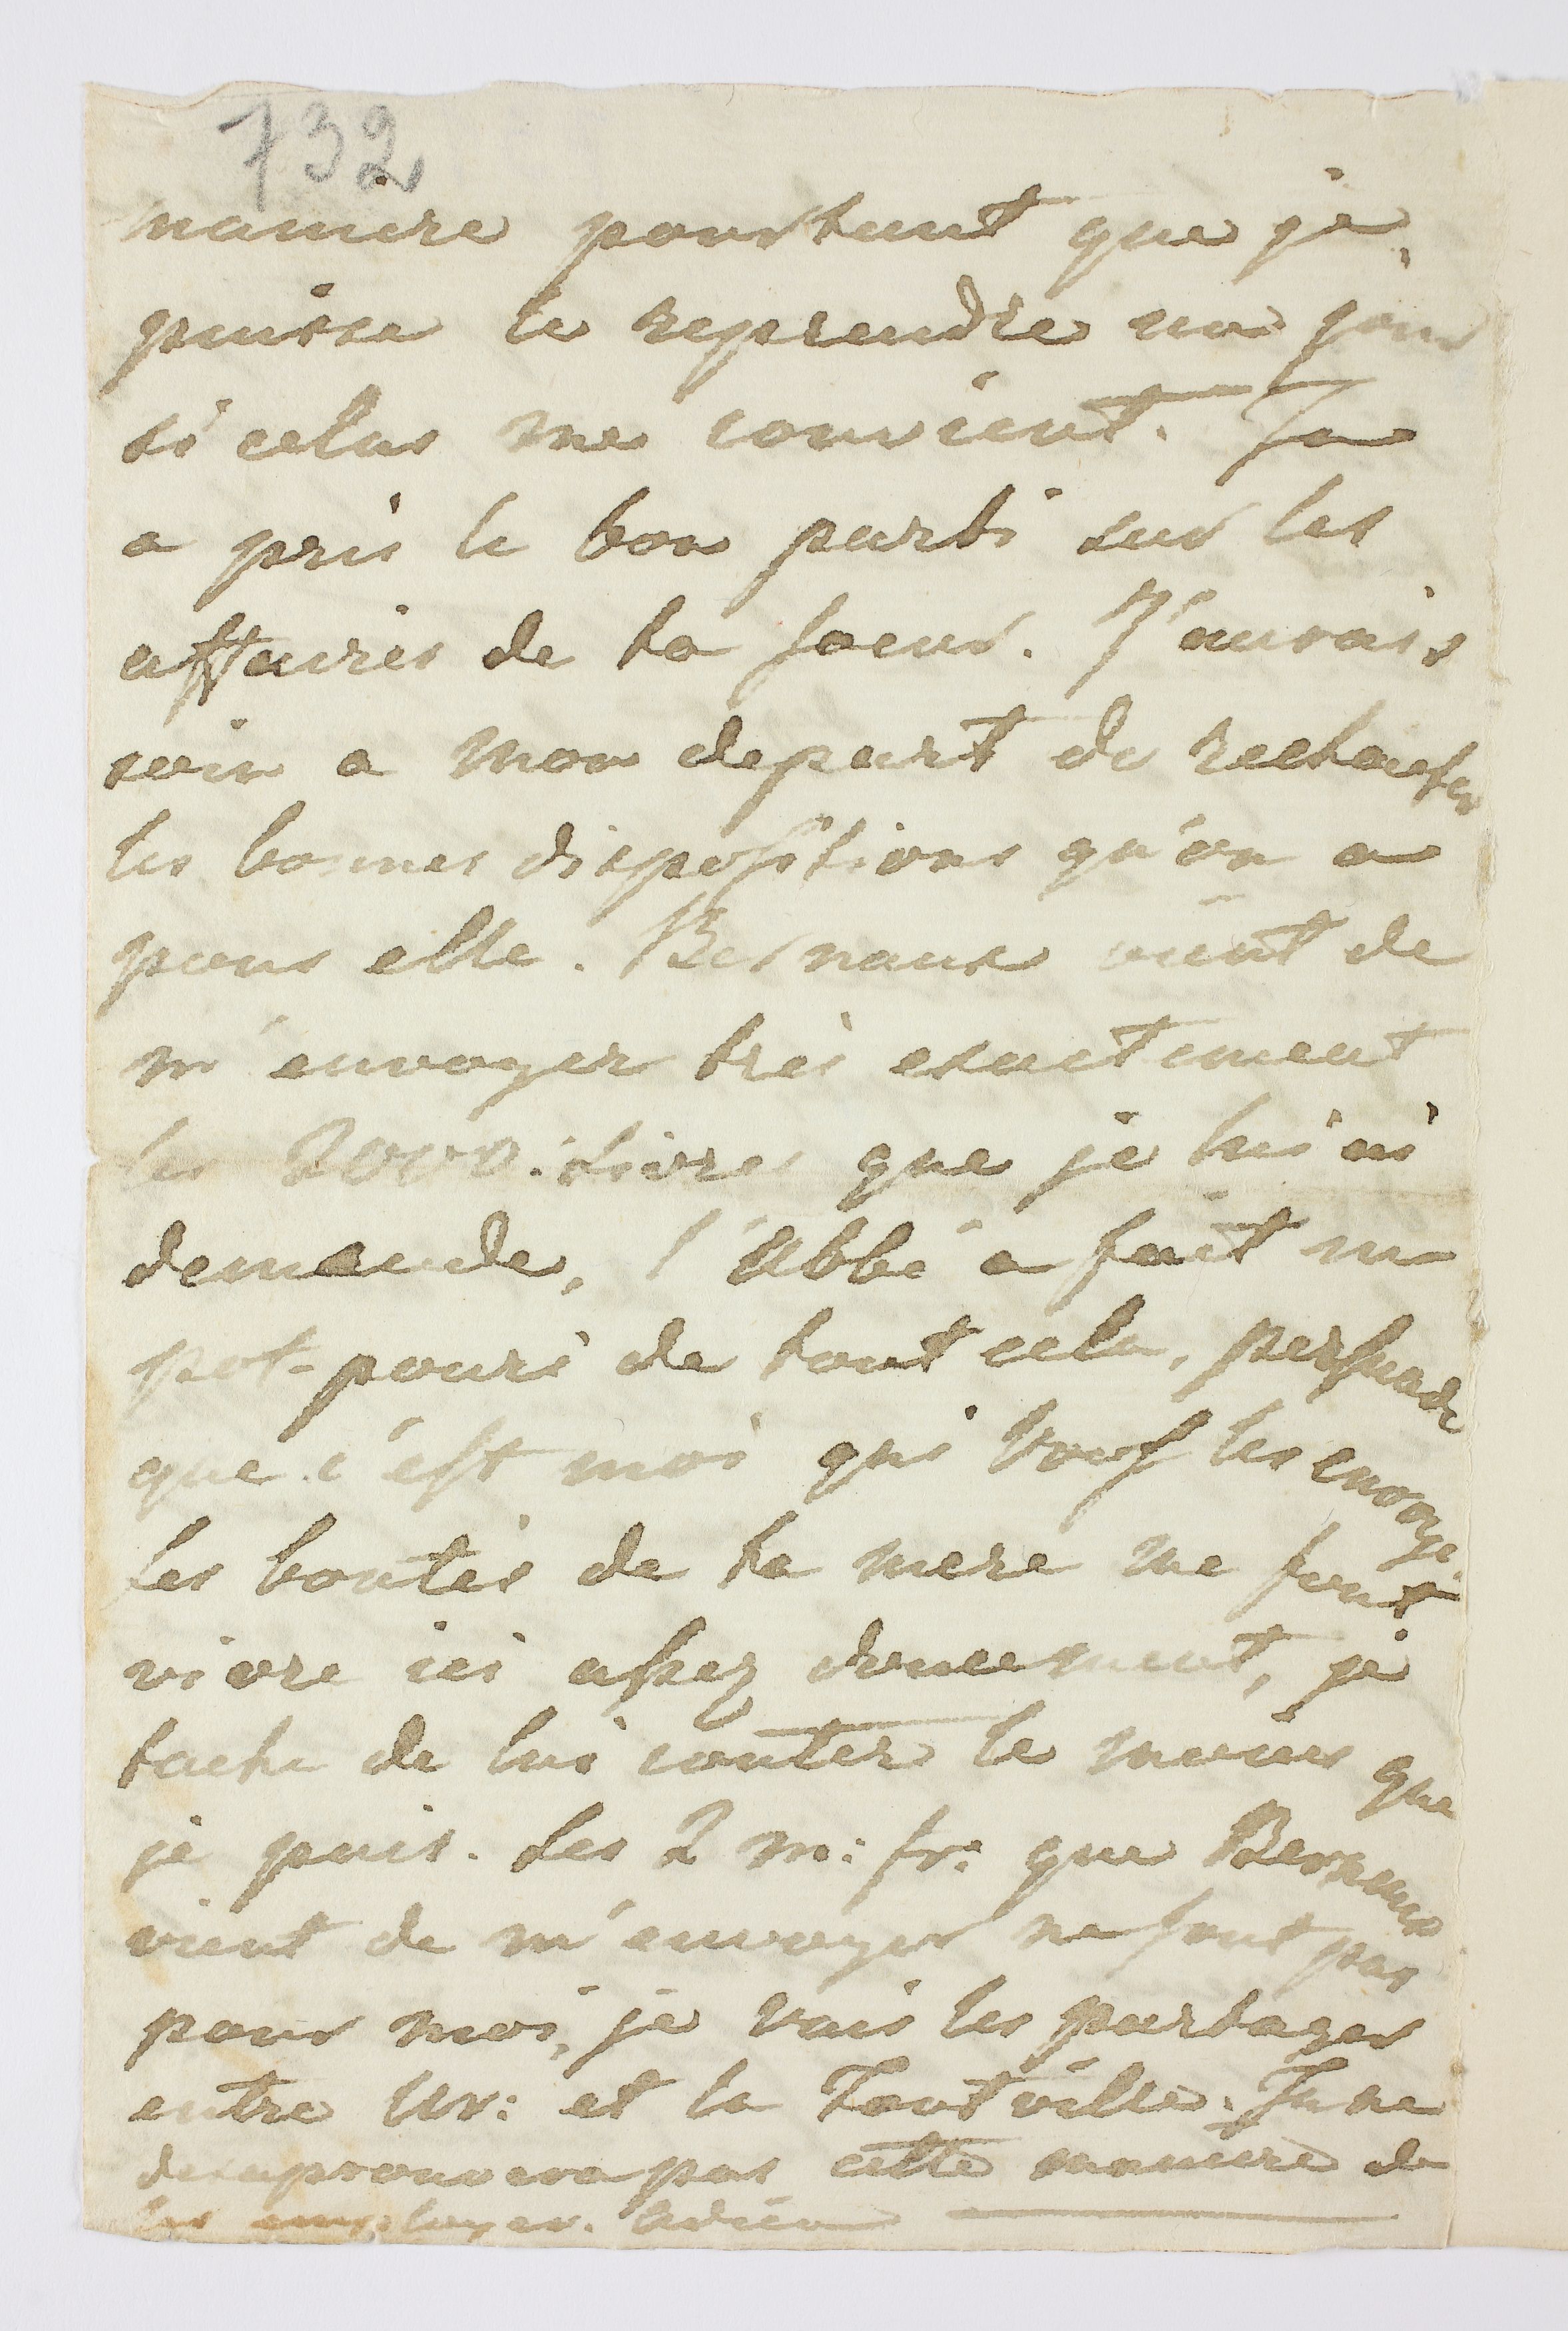 732
maniere pourtant que je
puisse le reprendre un jour
si cela me convient. Tu
a pris le bon parti sur les
affaires de ta soeur. J'aurais
soin a mon depart de rechaufer
les bonnes dispositions qu'on a
pour elle. Bernaux vient de
m'envoyer très exactement
les 2000. Livres que je lui ai
demande, l'Abbé a fait un
pot-pouri de tout cela, persuade
que c'est moi qui vous les envoye
Les bontés de ta mere me font
vivre ici assez doucement, je
tache de lui couter le moins que
je puis. Les 2 m: fr: que Bernaux
vient de m'envoyer ne sont pas
pour moi, je vais les partager
entre Ur: et la Toutville. Tu ne
desaprouvera pas cette maniere de
les employer. Adieu